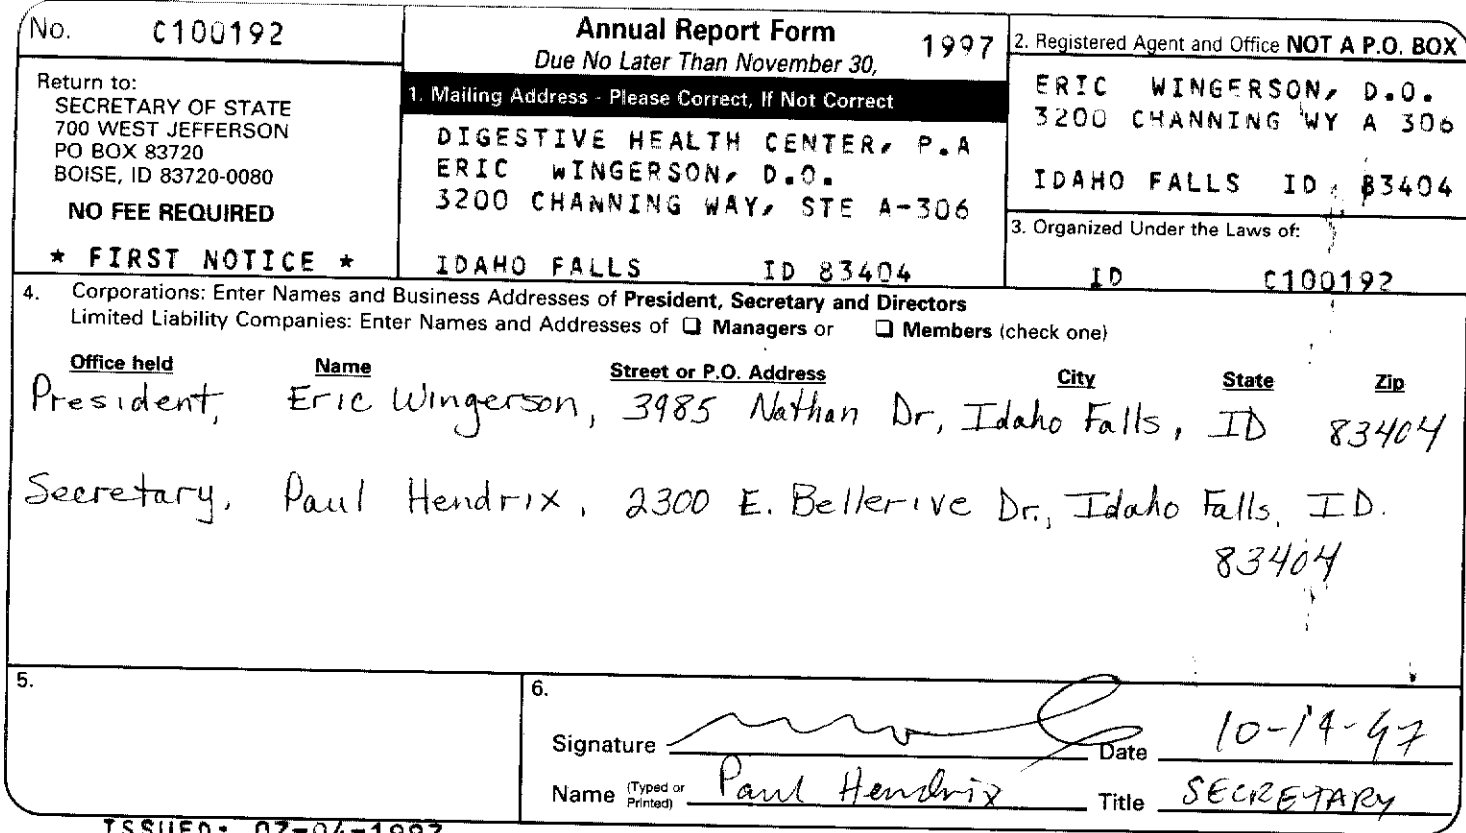 No. C100192
Return to:
SECRETARY OF STATE
700 WEST JEFFERSON
PO BOX 83720
BOISE, ID 83720-0080
NO FEE REQUIRED
* FIRST NOTICE *
Annual Report Form 1997
Due No Later Than November 30,
1. Mailing Address - Please Correct, If Not Correct
DIGESTIVE HEALTH CENTER, P.A
ERIC WINGERSON, D.O.
3200 CHANNING WAY, STE A-306
IDAHO FALLS ID 83404
2. Registered Agent and Office NOT A P.O. BOX
ERIC WINGERSON, D.O.
3200 CHANNING WY A 306
IDAHO FALLS ID 83404
3. Organized Under the Laws of:
ID C100192
4. Corporations: Enter Names and Business Addresses of President, Secretary and Directors
Limited Liability Companies: Enter Names and Addresses of ❑ Managers or ❑ Members (check one)
Office held Name Street or P.O. Address City State Zip
President, Eric Wingerson, 3985 Nathan Dr, Idaho Falls, ID 83404
Secretary, Paul Hendrix, 2300 E. Bellerive Dr., Idaho Falls, ID.
83404
5.
6.
Signature Date
Name (Typed or Printed) Paul Hendrix Title SECRETARY
ISSUED: 07-04-1997